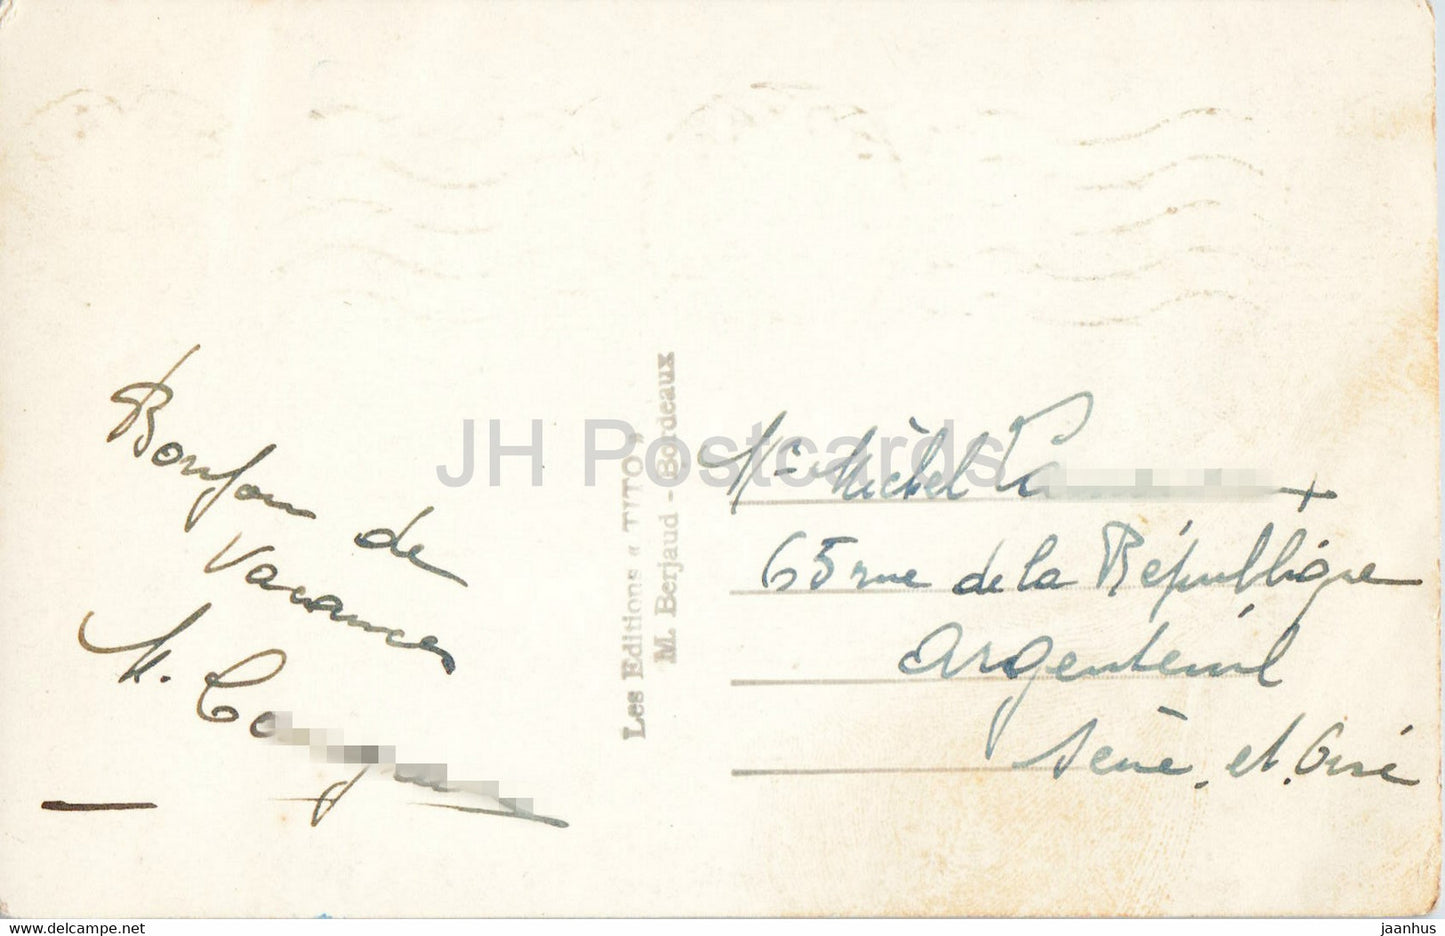 Bonjour de
Vacances
M.
Les Editions « TITO »
M. Berjaud - Bordeaux
JH Postcards
Mr Michel
65 rue de la République
Argenteuil
Seine et Oise
delcampe.net
jaanhus